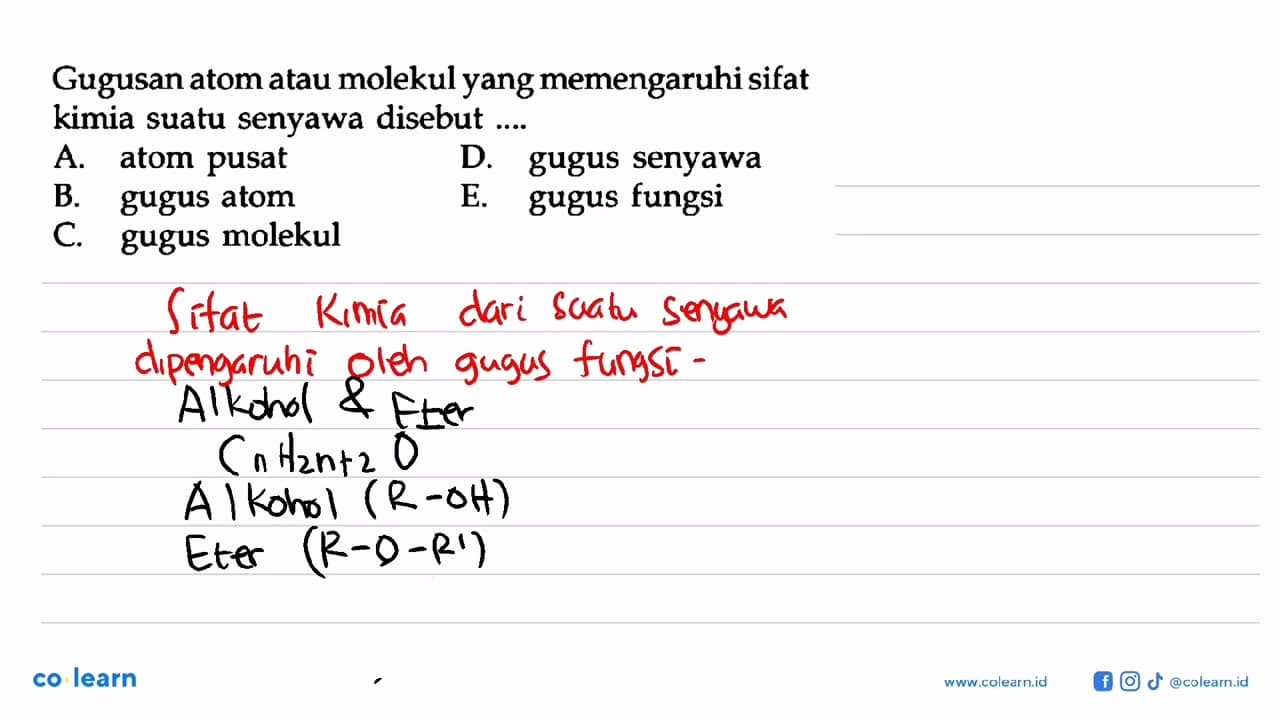 Gugusan atom atau molekul yang memengaruhi sifat
kimia suatu senyawa disebut ....
A. atom pusat
B. gugus atom
C. gugus molekul
D. gugus senyawa
E. gugus fungsi
Sifat Kimia dari suatu senyawa
dipengaruhi oleh gugus fungsi -
Alkohol & Eter
CnH2n+2 O
Alkohol (R-OH)
Eter (R-O-R')
co learn
www.colearn.id @colearn.id